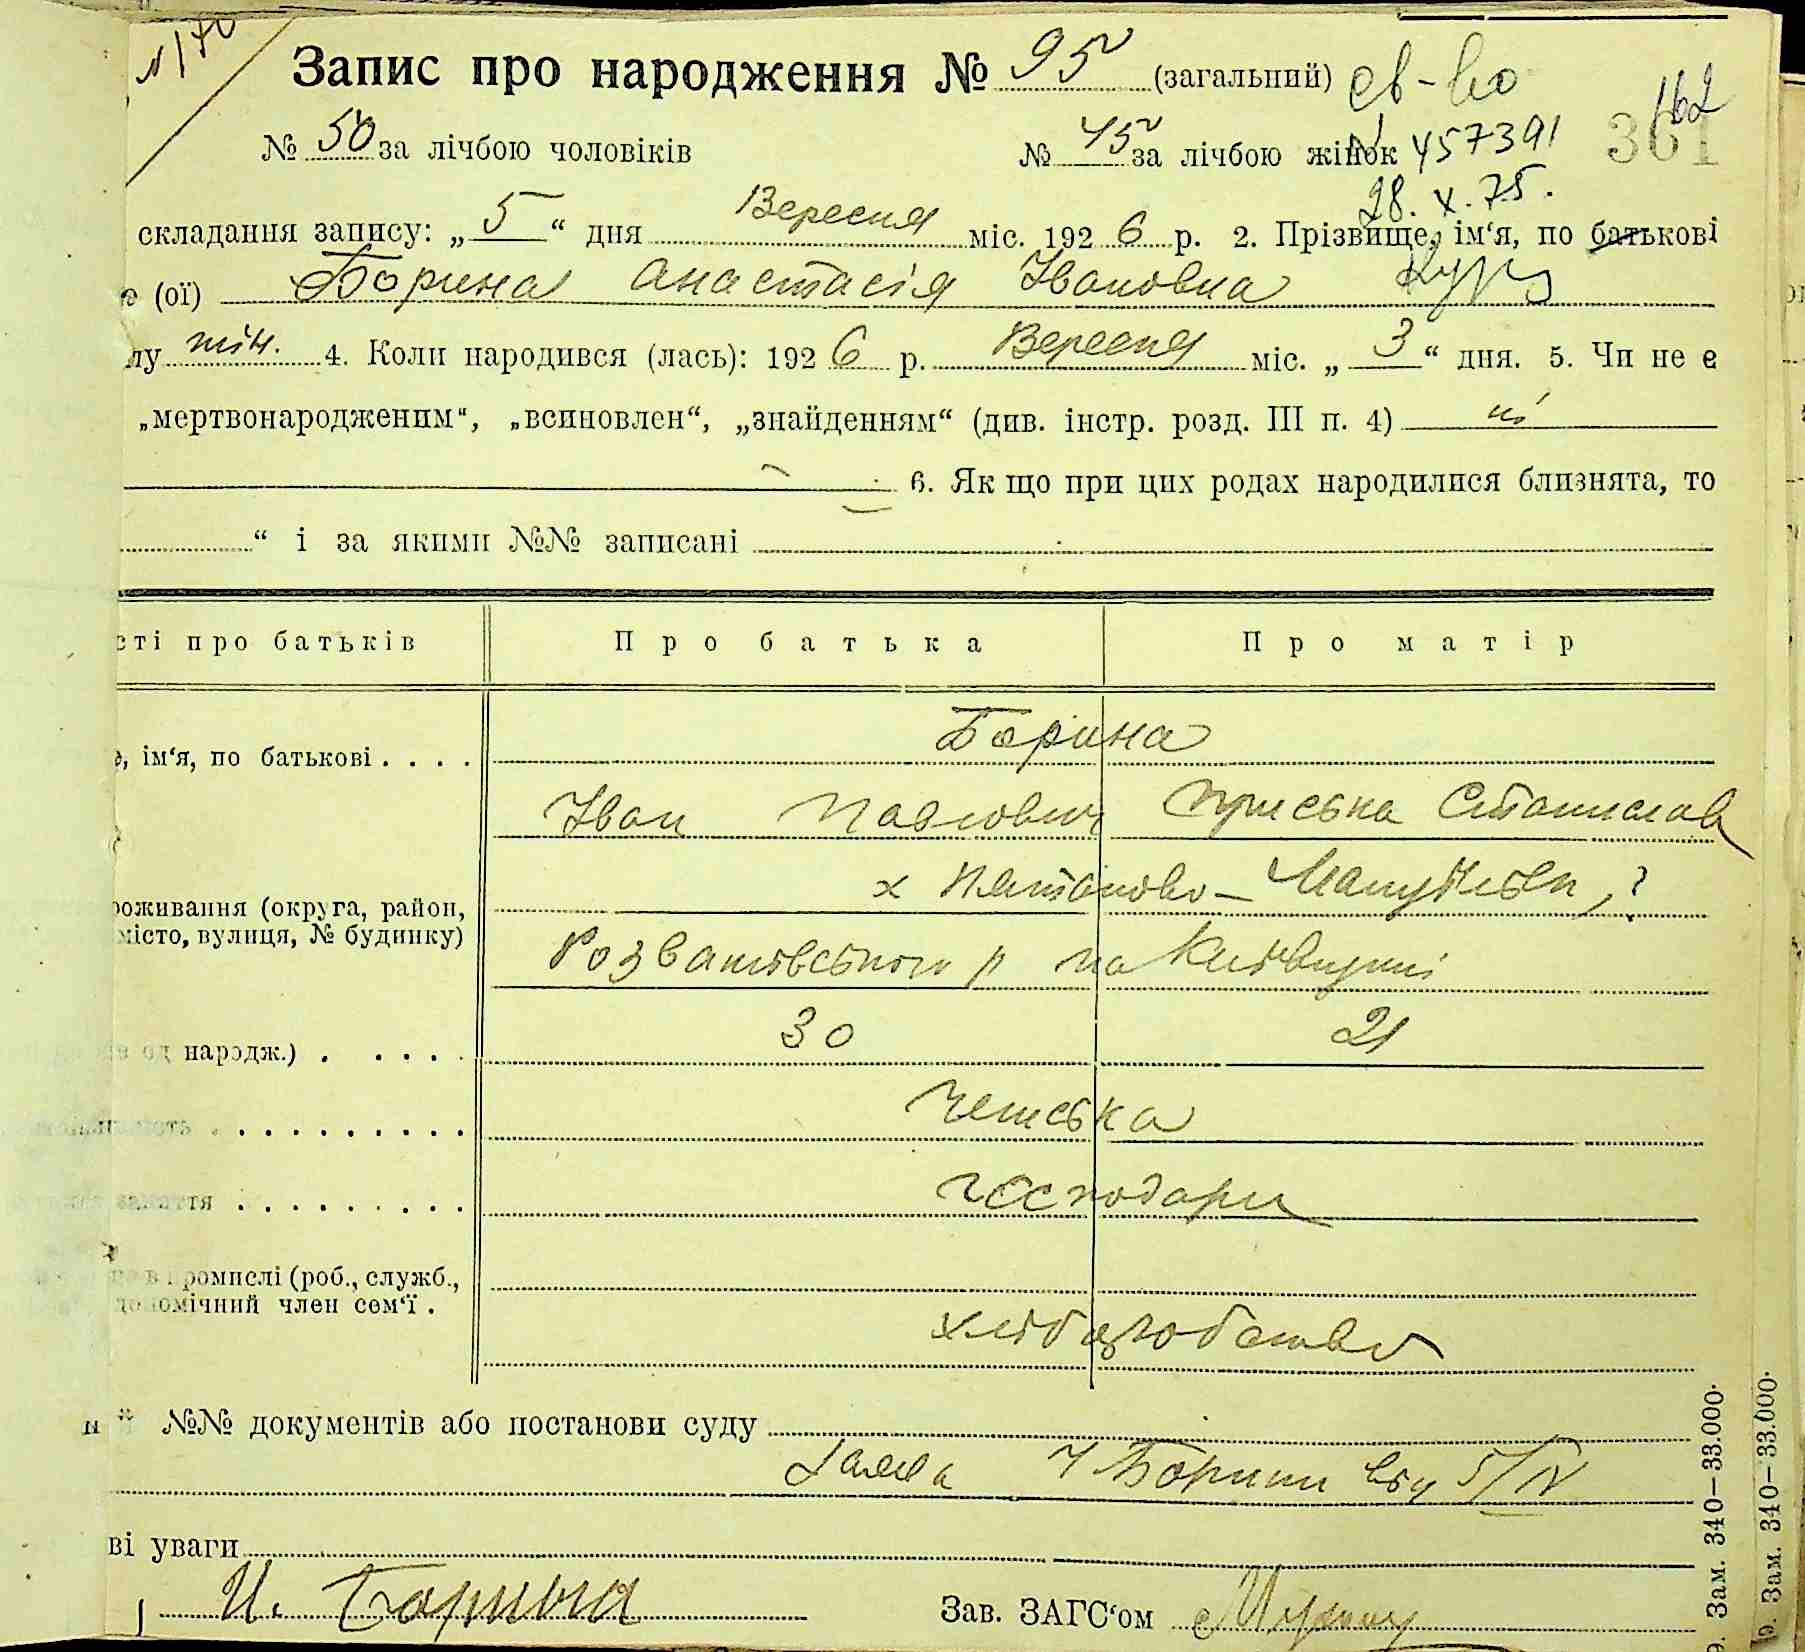 Запис про народження № 95 (загальний) св-во
162
№ 50 за лічбою чоловіків № 45 за лічбою жінок 457391 361
28. X. 75.
складання запису: „5“ дня Вересня міс. 1926 р. 2. Прізвище, ім‘я, по батькові
(ої) Борина Анастасія Івановна
жін. 4. Коли народився (лась): 1926 р. Вересня міс. „3“ дня. 5. Чи не є
„мертвонародженим“, „всиновлен“, „знайденням“ (див. інстр. розд. III п. 4) ні
6. Як що при цих родах народилися близнята, то
“ і за якими №№ записані
сті про батьків Про батька Про матір
Борина
, ім‘я, по батькові . . . .
Іван Павлович
роживання (округа, район,
місто, вулиця, № будинку)
на Київщині
од народж.) . . . . . 30 21
Чешська
. . . . . . . . .
заняття . . . . . . . . . господари
в промислі (роб., служб.,
омічний член сем‘ї .
хліборобство
№№ документів або постанови суду
Борини
ві уваги
И. Борына Зав. ЗАГС‘ом
Зам. 340—33.000.
Зам. 340—33.000.